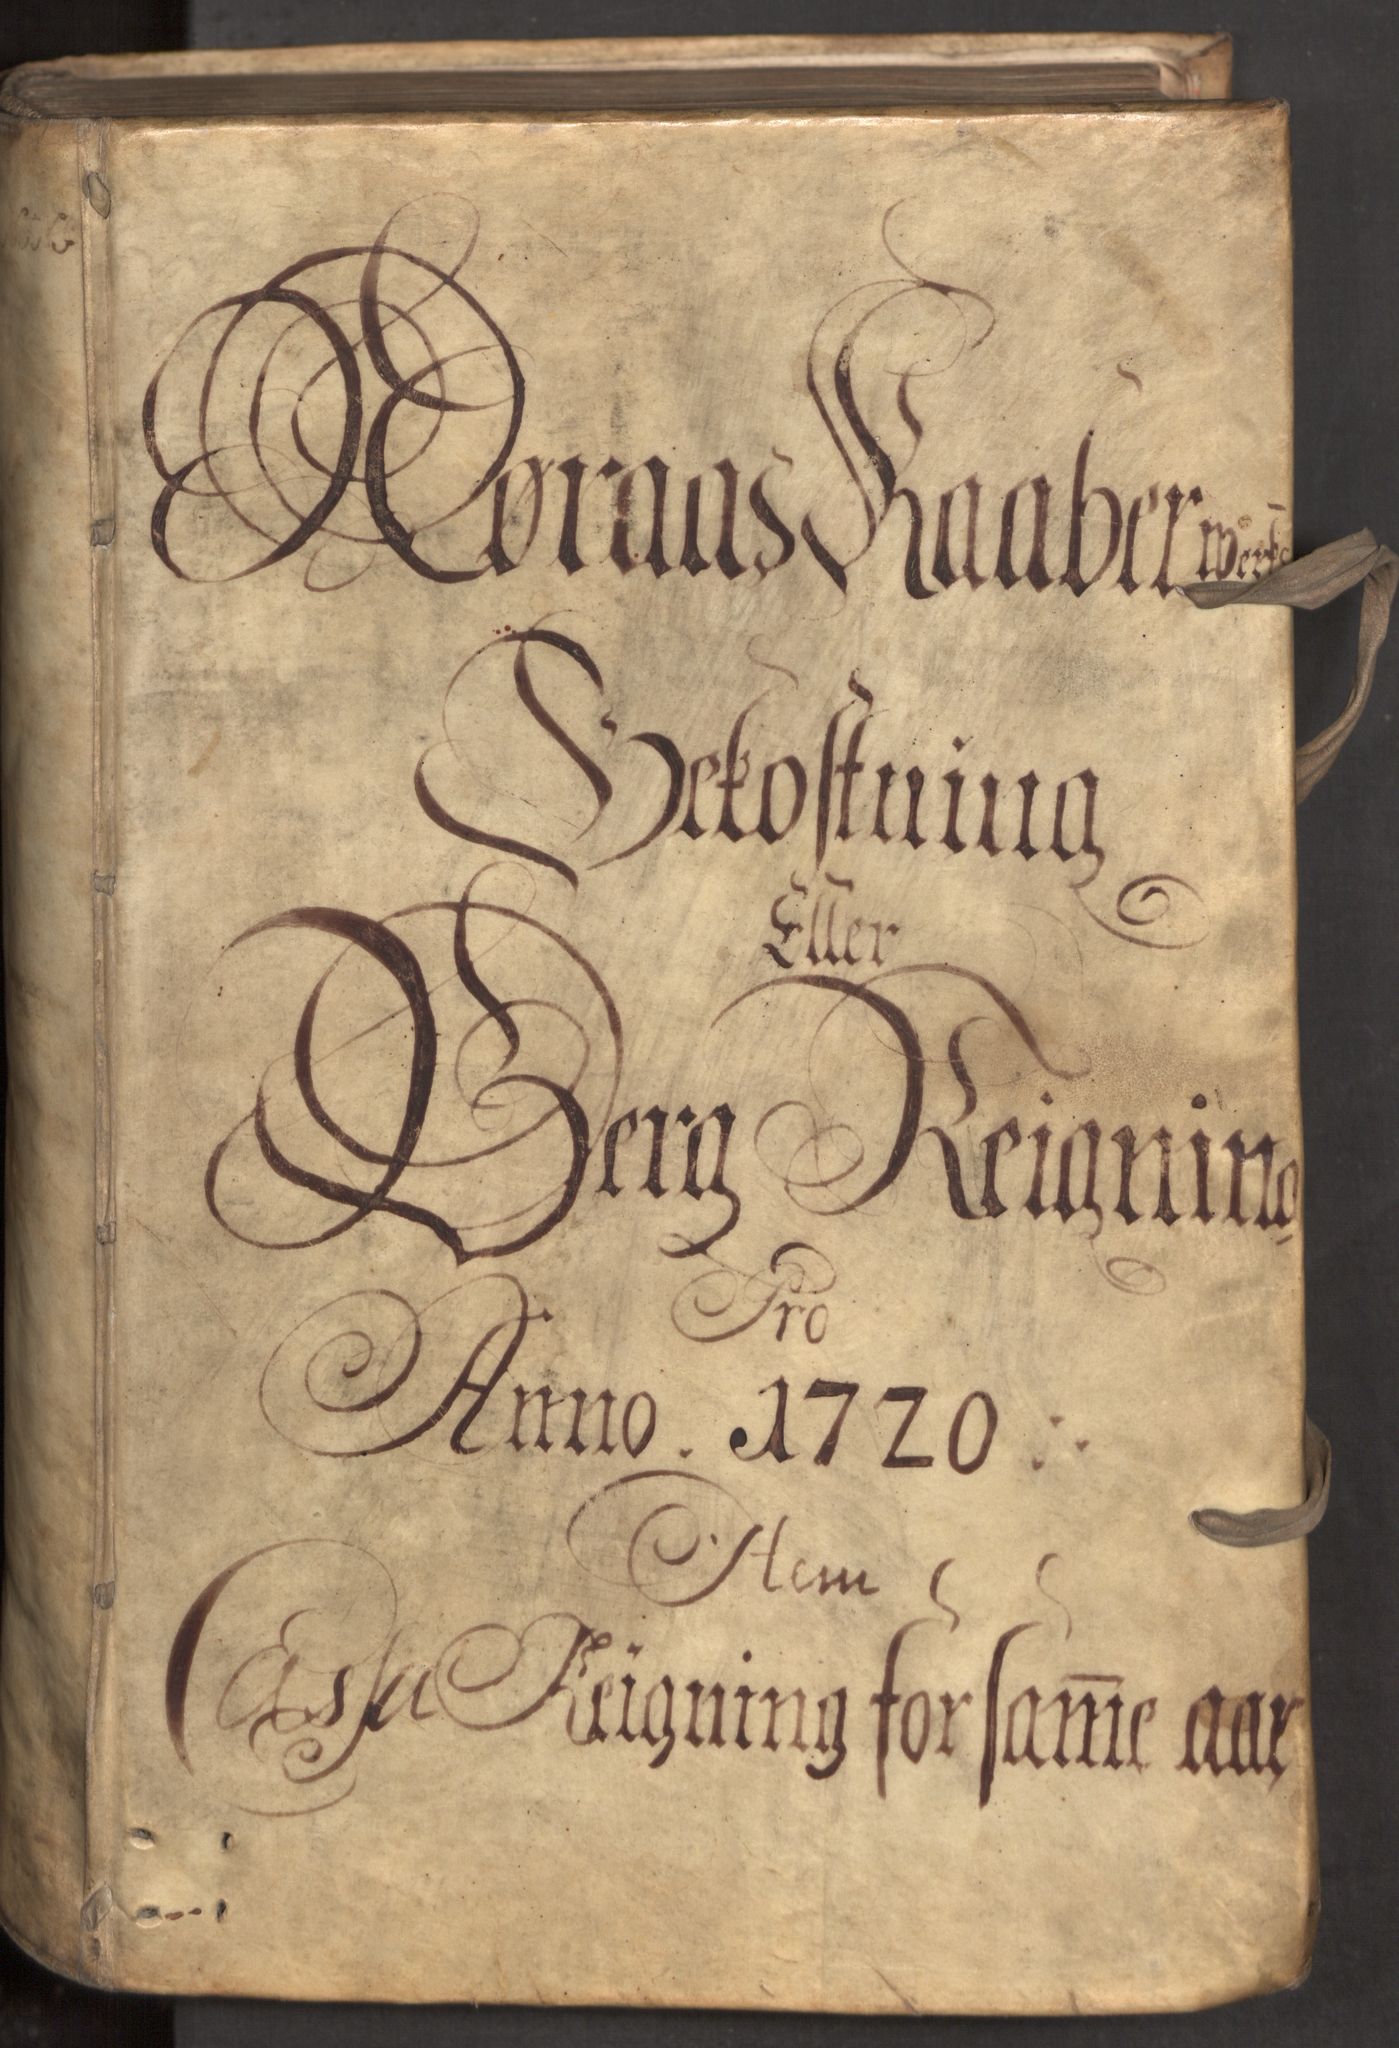 Røraas Kaaber Werks
Bekostning
Eller
Berg Reigning
Pro
Anno. 1720
Item
Cassa Reigning for sam̄e aar